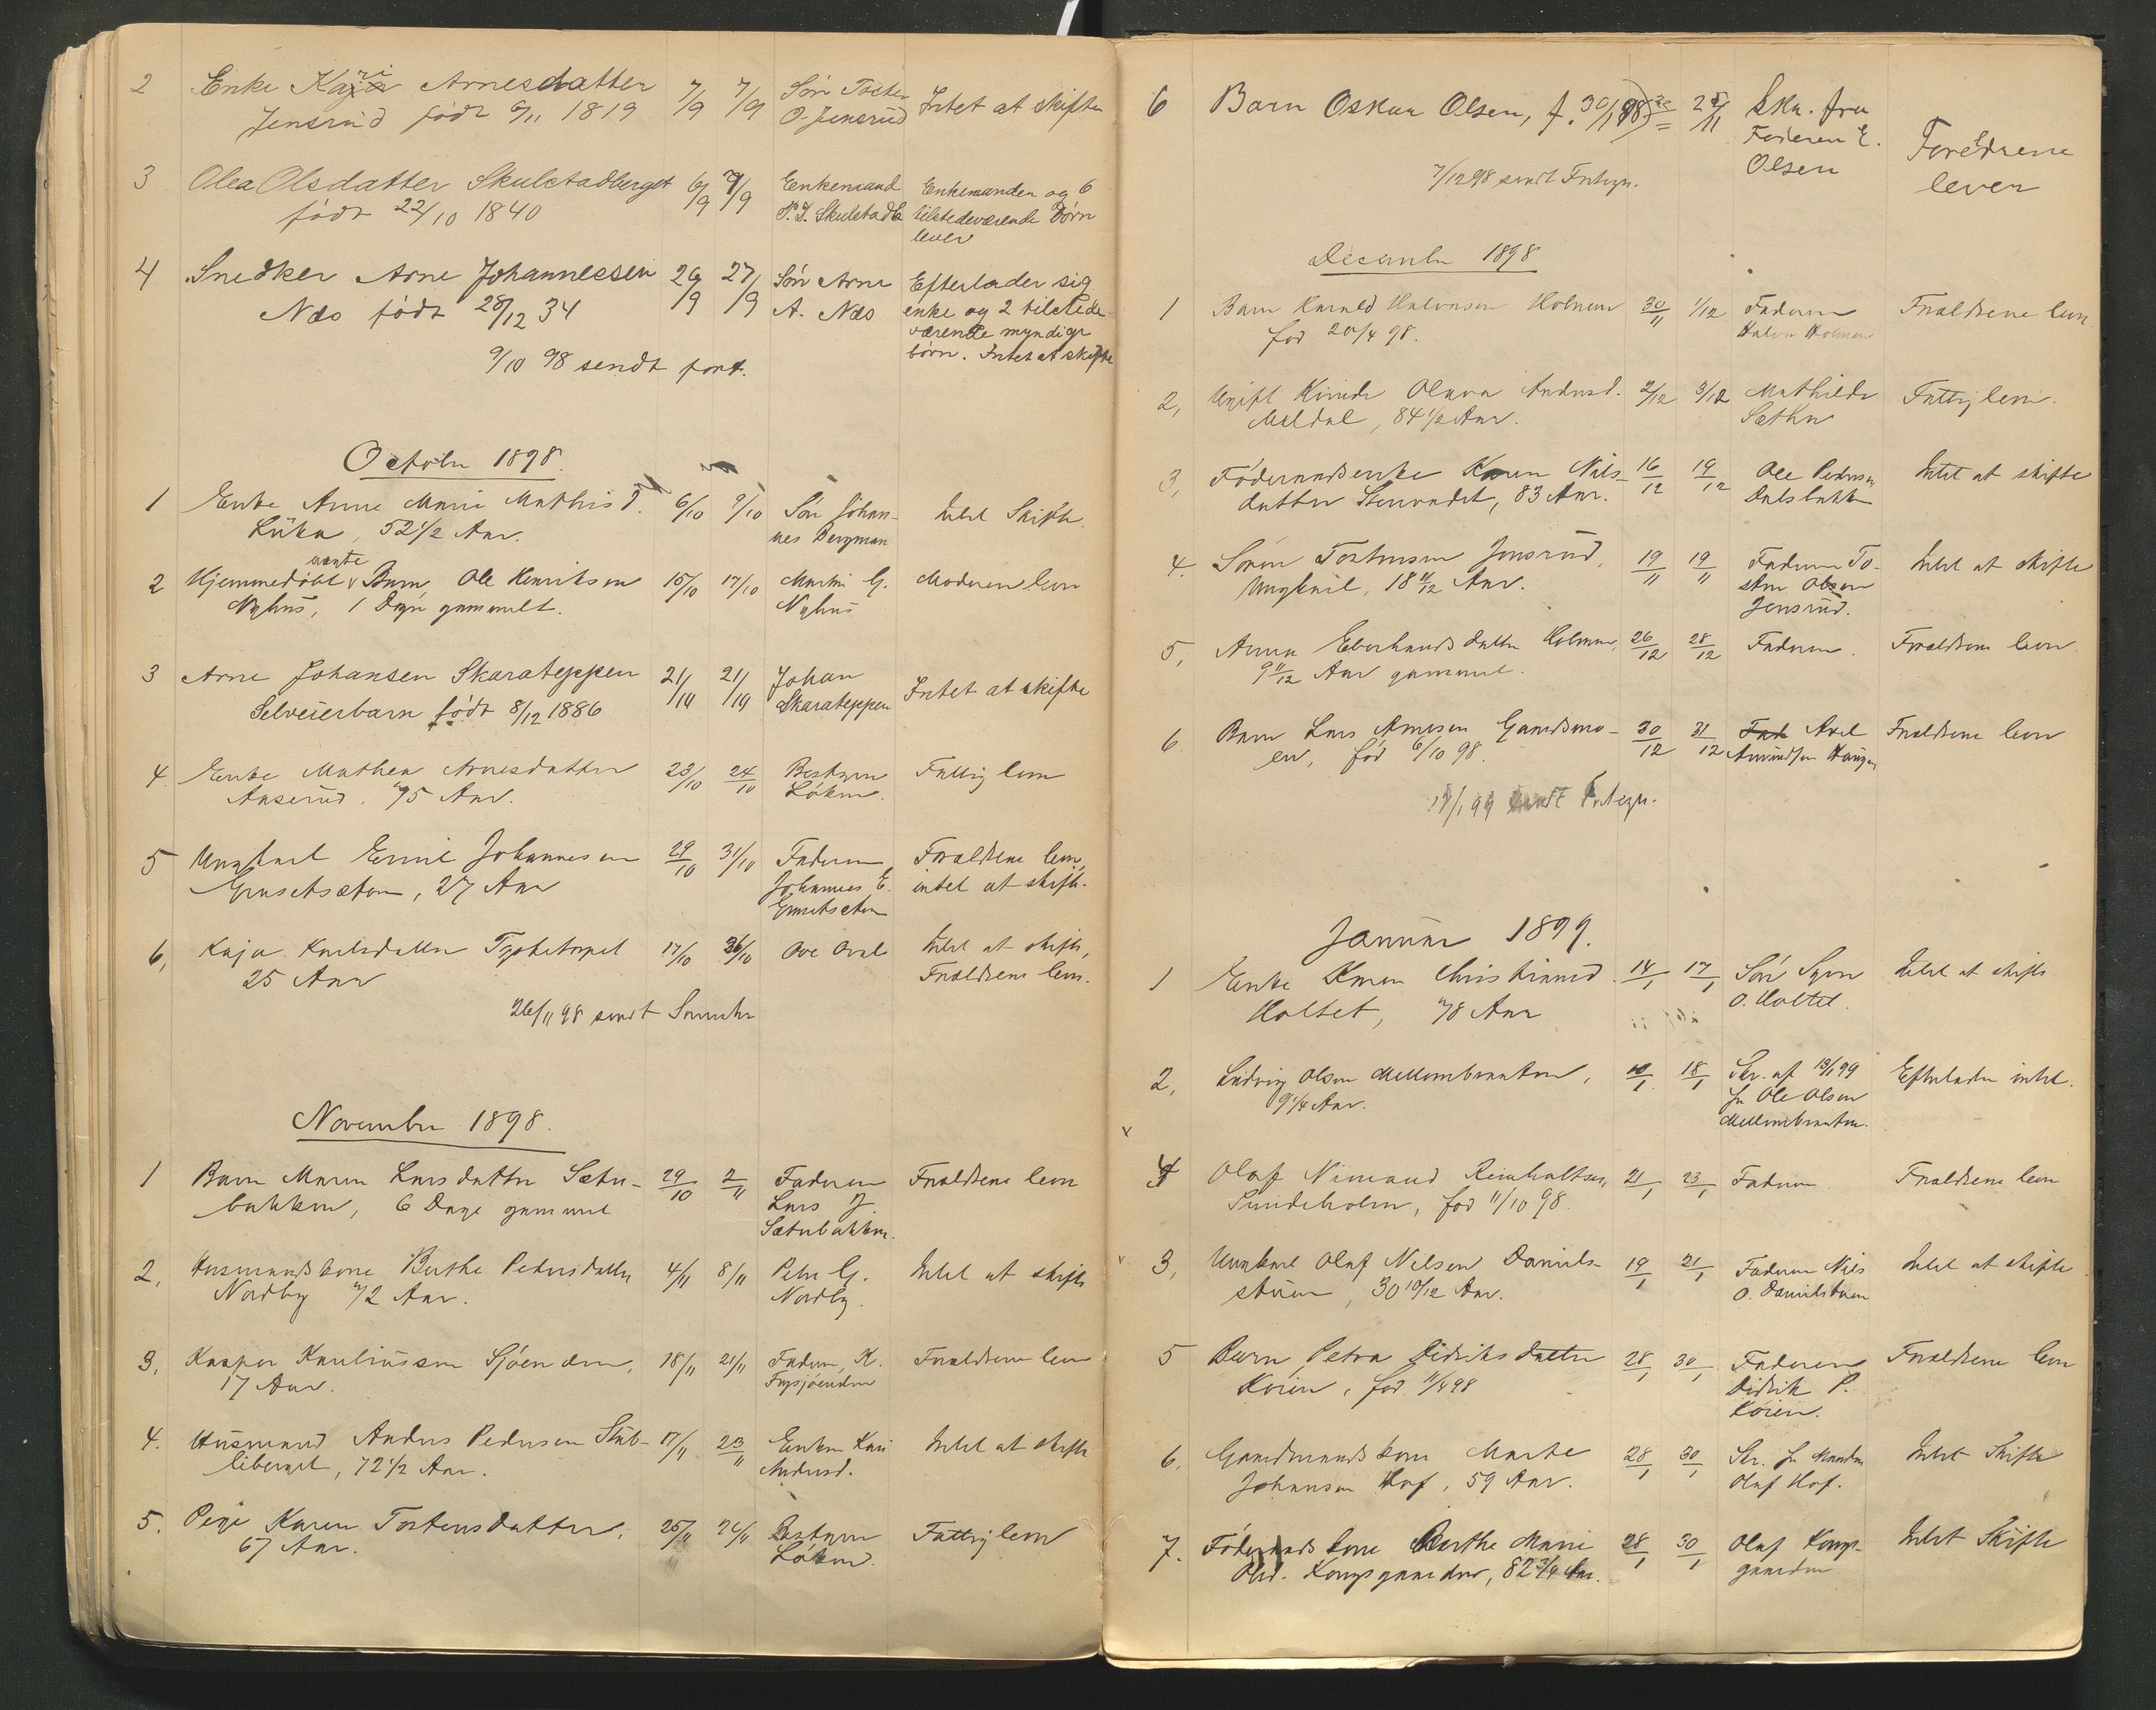 2 Enke Kari Arnesdatter 7/9 7/9 Søn Tosten Intet at skifte
Jensrud født 9/11 1819 O. Jensrud
3 Olea Olsdatter Skulstadberget 6/9 7/9 Enkemand Enkemanden og 6
født 22/10 1840 P. J. Skulstadb tilstedeværende børn
lever
4 Snedker Arne Johannessen 26/9 27/9 Søn Arne Efterlader sig
Næs født 28/12 34 A. Næs enke og 2 tilstede
værende myndige
børn. Intet at skifte
9/10 98 sendt fort.
October 1898.
1 Enke Anne Marie Mathisd. 6/10 9/10 Søn Johan- Intet Skifte.
Luka, 52 1/2 Aar. nes Bergman
uægte
2 Hjemmedøbt Barn, Ole Henriksen 15/10 17/10 Martin G. Moderen lever
Nyhus, 1 Døgn gammelt. Nyhus
3 Arne Johansen Skarateppen 21/10 21/10 Johan Intet at skifte
Selveierbarn født 8/12 1886 Skarateppen
4 Enke Mathea Arnesdatter 23/10 24/10 Bestyrer Fattiglem
Aaserud, 75 Aar. Løken.
5 Ungkarl Emil Johannesen 29/10 31/10 Faderen Forældrene lever,
Grasetsæteren, 27 Aar Johannes E. intet at skifte.
Grasetsæteren
6, Kaja Karlsdatter Tysketorpet 17/10 Ove Intet at skifte,
25 Aar Forældrene lever.
26/11 98 sendt
November 1898.
1 Barn Maren Larsdatter Sæter- 29/10 2/11 Faderen Forældrene lever
bakken, 6 Dage gammel Lars J.
Sæterbakken.
2, Husmandskone Berthe Pedersdatter 4/11 8/11 Peder G. Intet at skifte
Nordby 72 Aar. Nordby.
3, Kasper Karliussen Sjøenden, 18/11 21/11 Faderen, K. Forældrene lever
17 Aar. Frysjøenden
4. Husmand Anders Pedersen Stub- 17/11 23/11 Enken Kari Intet at skifte
liberget, 72 1/2 Aar. Andersd.
5. Pige Karen Tostensdatter, 25/11 26/11 Bestyrer Fattiglem
67 Aar. Løken.
6 Barn Oskar Olsen, f. 30/1 98 25/11 Skr. fra Forældrene
Faderen E. lever
Olsen
7/12 98 sendt Fortegn.
December 1898
1 Barn Harald Halvorsen Holmen 30/11 1/12 Faderen Forældrene lever
fød 20/4 98. Halvor Holmen
2, Ugift Kvinde Olava Andersd. 2/12 3/12 Mathilde Fattiglem.
Meldal, 84 1/2 Aar. Sæther
3, Føderaadsenke Karen Nils- 16/12 19/12 Ole Pedersen Intet at skifte
datter Stenvadet, 83 Aar. Dalsbakken
4. Søren Tostensen Jensrud, 19/11 19/11 Faderen To- Intet at skifte
Ungkarl, 18 11/12 Aar. sten Olsen
Jensrud.
5, Anna Eberhardsdatter Holmen, 26/12 28/12 Faderen. Forældrene lever.
9 11/12 Aar gammel.
6. Barn Lars Arnesen Gaardsmo- 30/12 31/12 Axel Forældrene lever
en, fød 6/10 98. Amundsen Haugen
17/1 99 sendt Fortegn.
Januar 1899.
1 Enke Karen Christiansd. 14/1 17/1 Søn Syver Intet at skifte
Holtet, 78 Aar O. Holtet.
2, Ludvig Olsen Mellembraaten, 10/1 18/1 Skr. af 13/1 99 Efterlader intet.
9 1/4 Aar. fr. Ole Olsen
Mellembraaten.
4 Olaf Nimand Reinholtsen, 21/1 23/1 Faderen. Forældrene lever
Sundeholm, fød 11/10 98.
3, Ungkarl Olaf Nilsen Daniels- 19/1 21/1 Faderen Nils Intet at skifte.
stuen, 30 10/12 Aar. O. Danielstuen
5 Barn Petra Didriksdatter 28/1 30/1 Faderen Forældrene lever
Koien, fød 11/4 98 Didrik P.
Koien.
6, Gaardmandskone Marte 28/1 30/1 Skr. fr. Manden Intet Skifte
Johansen Hof, 59 Aar. Olaf Hof.
7. Føderaadskone Berthe Marie 28/1 30/1 Olaf Kongs- Intet Skifte
Olsd. Kongsgaarden, 82 3/4 Aar. gaarden